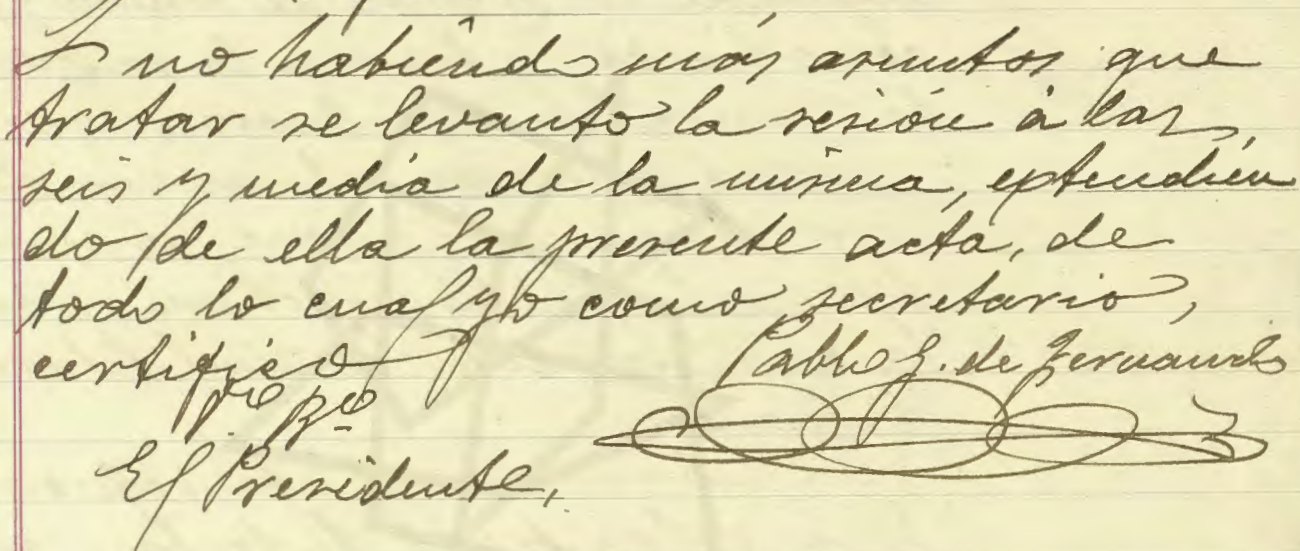 Y no habiendo más asuntos que
tratar se levanto la sesión á las
seis y media de la misma, extendien
do de ella la presente acta, de
todo lo cual yo como secretario,
certifico
Pablo G. de Fernando
Vº Bº
El Presidente,